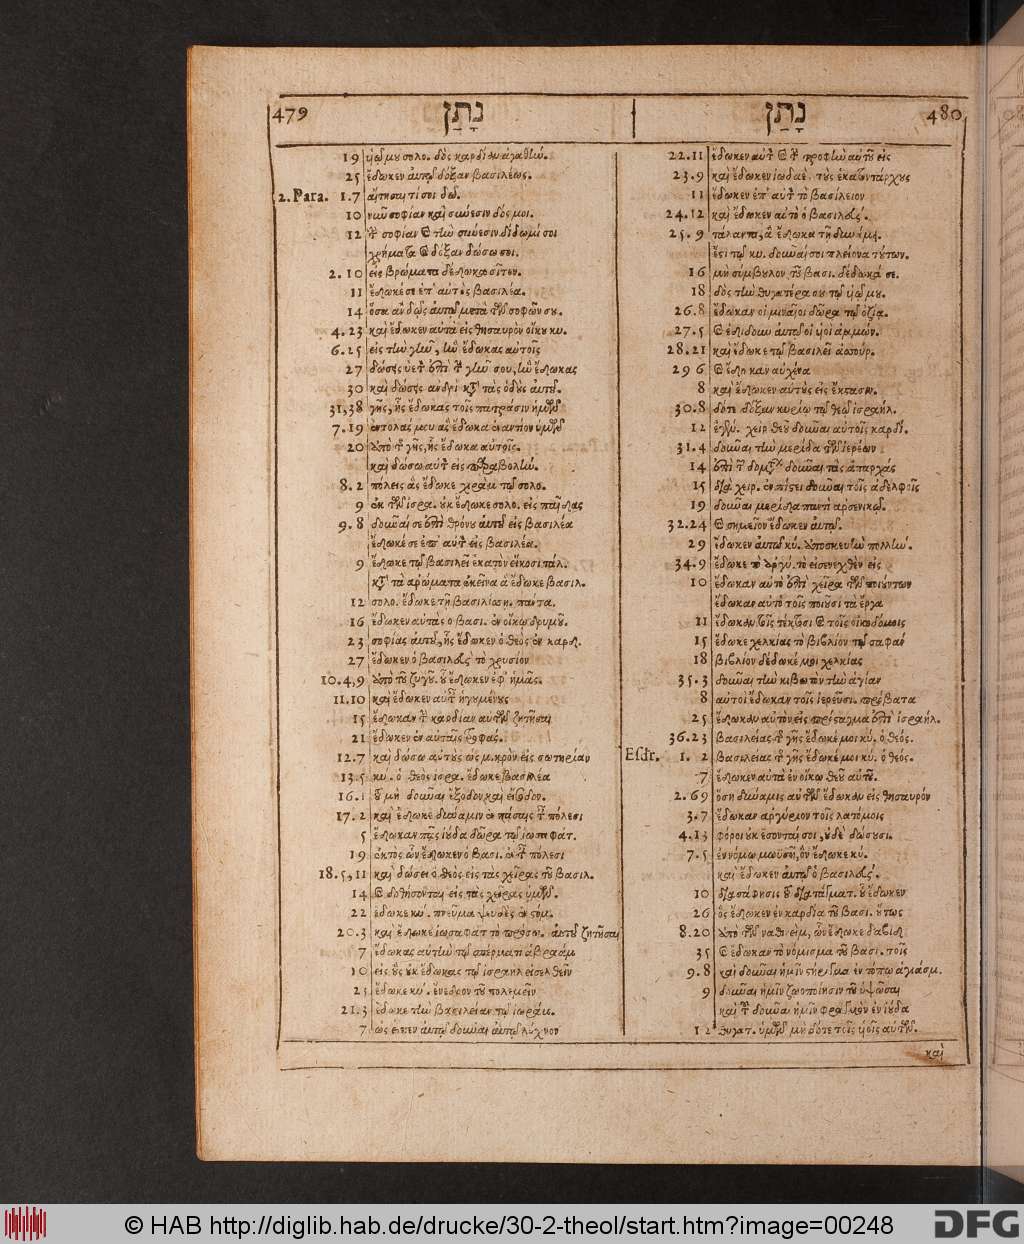 479 נָתַן נָתַן 480
19 υἱῷ μου σολο. δὸς καρδίαν ἀγαθὴν.
25 ἔδωκεν ἐπ' αὐτῷ δόξαν βασιλέως.
2. Para. 1.7 αἴτησαι τί σοι δῶ.
10 νῦν σοφίαν καὶ σύνεσιν δός μοι.
12 τὴν σοφίαν καὶ τὴν σύνεσιν δίδωμί σοι
χρήματα καὶ δόξαν δώσω σοι.
2.10 εἰς βρώματα δέδωκα σῖτον.
11 ἔδωκέ σε ἐπ' αὐτοὺς βασιλέα.
14 ὅσα ἂν δῷς αὐτῷ μετὰ τῶν σοφῶν σου.
4.23 καὶ ἔδωκεν αὐτὰ εἰς θησαυρὸν οἴκου κυ.
6.25 εἰς τὴν γῆν, ἣν ἔδωκας αὐτοῖς
27 δώσεις ὑετὸν ἐπὶ τὴν γῆν σου, ἣν ἔδωκας
30 καὶ δώσεις ἀνδρὶ κατὰ τὰς ὁδοὺς αὐτοῦ.
31,38 γῆς, ἧς ἔδωκας τοῖς πατράσιν ἡμῶν
7.19 ἐντολάς μου ἃς ἔδωκα ἐναντίον ὑμῶν
20 ἀπὸ τῆς γῆς, ἧς ἔδωκα αὐτοῖς.
καὶ δώσω αὐτὸν εἰς παραβολὴν.
8.2 πόλεις ἃς ἔδωκε χιρὰμ τῷ σολο.
9 ἐκ τῶν ἰσρα. οὐκ ἔδωκε σολο. εἰς παῖδας
9.8 δοῦναί σε ἐπὶ θρόνου αὐτοῦ εἰς βασιλέα
ἔδωκέ σε ἐπ' αὐτοὺς εἰς βασιλέα.
9 ἔδωκε τῷ βασιλεῖ ἑκατὸν εἴκοσι τάλ.
κατὰ τὰ ἀρώματα ἐκεῖνα ἃ ἔδωκε βασιλ.
12 σολο. ἔδωκε τῇ βασιλίσσῃ. πάντα.
16 ἔδωκεν αὐτὰς ὁ βασι. ἐν οἴκῳ δρυμοῦ.
23 σοφίας αὐτοῦ, ἧς ἔδωκεν ὁ θεὸς ἐν καρδ.
27 ἔδωκεν ὁ βασιλεὺς τὸ χρυσίον
10.4,9 ἀπὸ τοῦ ζυγοῦ. οὗ ἔδωκεν ἐφ' ἡμᾶς.
11.10 καὶ ἔδωκεν αὐτῶν ἡγουμένους
15 ἔδωκαν τὴν καρδίαν αὐτῶν ζητῆσαι
21 ἔδωκεν ἐν αὐταῖς τροφάς.
12.7 καὶ δώσω αὐτοὺς ὡς μικρὸν εἰς σωτηρίαν
13.5 κυ. ὁ θεὸς ἰσρα. ἔδωκε βασιλέα
16.1 τοῦ μὴ δοῦναι ἔξοδον καὶ εἴσοδον.
17.2 καὶ ἔδωκε δύναμιν ἐν πάσαις ταῖς πόλεσι
5 ἔδωκαν πᾶς ἰούδα δῶρα τῷ ἰωσαφάτ.
19 ἐκτὸς ὧν ἔδωκεν ὁ βασι. ἐν ταῖς πόλεσι
18.5,11 καὶ δώσει ὁ θεὸς εἰς τὰς χεῖρας τοῦ βασιλ.
14 καὶ δοθήσονται εἰς τὰς χεῖρας ὑμῶν.
22 ἔδωκε κύ. πνεῦμα ψευδὲς ἐν στόμ.
20.3 καὶ ἔδωκε ἰωσαφὰτ τὸ πρόσω. αὐτοῦ ζητῆσαι
7 ἔδωκας αὐτὴν τῷ σπέρματι ἀβραάμ
10 εἰς οὓς οὐκ ἔδωκας τῷ ἰσραὴλ εἰσελθεῖν
21 ἔδωκε κύ. ἔνεδρον τοῦ πολεμεῖν
21.3 ἔδωκε τὴν βασιλείαν τῷ ἰωράμ.
7 ὡς εἶπεν αὐτῷ δοῦναι αὐτῷ λύχνον
22.11 ἔδωκεν αὐτὸν καὶ τὴν τροφὴν αὐτοῦ εἰς
23.9 καὶ ἔδωκεν ἰωδαὲ. τοὺς ἑκατοντάρχους
11 ἔδωκεν ἐπ' αὐτὸν τὸ βασίλειον
24.12 καὶ ἔδωκεν αὐτὸ ὁ βασιλεὺς.
25.9 τάλαντα, ἃ ἔδωκα τῇ δυνάμει.
ἔστι τῷ κυ. δοῦναί σοι πλείονα τούτων.
16 μὴ σύμβουλον τοῦ βασι. δέδωκά σε.
18 δὸς τὴν θυγατέρα σου τῷ υἱῷ μου.
26.8 ἔδωκαν οἱ μιναῖοι δῶρα τῷ ὀζίᾳ.
27.5 καὶ ἐδίδουν αὐτῷ οἱ υἱοὶ ἀμμών.
28.21 καὶ ἔδωκε τῷ βασιλεῖ ἀσσούρ.
29 6 καὶ ἔδωκαν αὐχένα
8 καὶ ἔδωκεν αὐτοὺς εἰς ἔκστασιν.
30.8 δότε δόξαν κυρίῳ τῷ θεῷ ἰσραήλ.
12 ἐγέν. χεὶρ θεοῦ δοῦναι αὐτοῖς καρδί.
31.4 δοῦναι τὴν μερίδα τῶν ἱερέων
14 ἐπὶ τῶν δομάτων δοῦναι τὰς ἀπαρχάς
15 διὰ χειρ. ἐν πίστει δοῦναι τοῖς ἀδελφοῖς
19 δοῦναι μερίδα παντὶ ἀρσενικῷ.
32.24 καὶ σημεῖον ἔδωκεν αὐτῷ.
29 ἔδωκεν αὐτῷ κύ. ἀποσκευὴν πολλὴν.
34.9 ἔδωκε τὸ ἀργύ. τὸ εἰσενεχθὲν εἰς
10 ἔδωκαν αὐτὸ ἐπὶ χεῖρα τῶν ποιούντων
ἔδωκαν αὐτὸ τοῖς ποιοῦσι τὰ ἔργα
11 ἔδωκαν τοῖς τέκτοσι καὶ τοῖς οἰκοδόμοις
15 ἔδωκε χελκίας τὸ βιβλίον τῷ σαφάν
18 βιβλίον δέδωκέ μοι χελκίας
35.3 δοῦναι τὴν κιβωτὸν τὴν ἁγίαν
8 αὐτοὶ ἔδωκαν τοῖς ἱερεῦσι. πρόβατα
25 ἔδωκαν αὐτὸν εἰς πρόσταγμα ἐπὶ ἰσραήλ.
36.23 βασιλείας τῆς γῆς ἔδωκέ μοι κύ. ὁ θεός.
Esdr. 1.2 βασιλείας τῆς γῆς ἔδωκέ μοι κύ. ὁ θεός.
7 ἔδωκεν αὐτὰ ἐν οἴκῳ θεοῦ αὐτοῦ.
2.69 ὅση δύναμις αὐτῶν ἔδωκαν εἰς θησαυρόν
3.7 ἔδωκαν ἀργύριον τοῖς λατόμοις
4.13 φόροι οὐκ ἔσονταί σοι, οὐδὲ δώσουσι.
7.5 ἐν νόμῳ μωϋσῆ, ὃν ἔδωκε κύ.
καὶ ἔδωκεν αὐτῷ ὁ βασιλεὺς.
10 διασάφησις τοῦ διατάγματ. οὗ ἔδωκεν
26 ὃς ἔδωκεν ἐν καρδίᾳ τοῦ βασι. οὕτως
8.20 ἀπὸ τῶν ναθινείμ, ὧν ἔδωκε δαβίδ
35 καὶ ἔδωκαν τὸ νόμισμα τοῦ βασι. τοῖς
9.8 καὶ δοῦναι ἡμῖν στήριγμα ἐν τόπῳ ἁγιάσμ.
9 δοῦναι ἡμῖν ζωοποίησιν τοῦ ὑψῶσαι
καὶ τοῦ δοῦναι ἡμῖν φραγμὸν ἐν ἰούδα
12 θυγατ. ὑμῶν μὴ δότε τοῖς υἱοῖς αὐτῶν.
καὶ
© HAB http://diglib.hab.de/drucke/30-2-theol/start.htm?image=00248
DFG